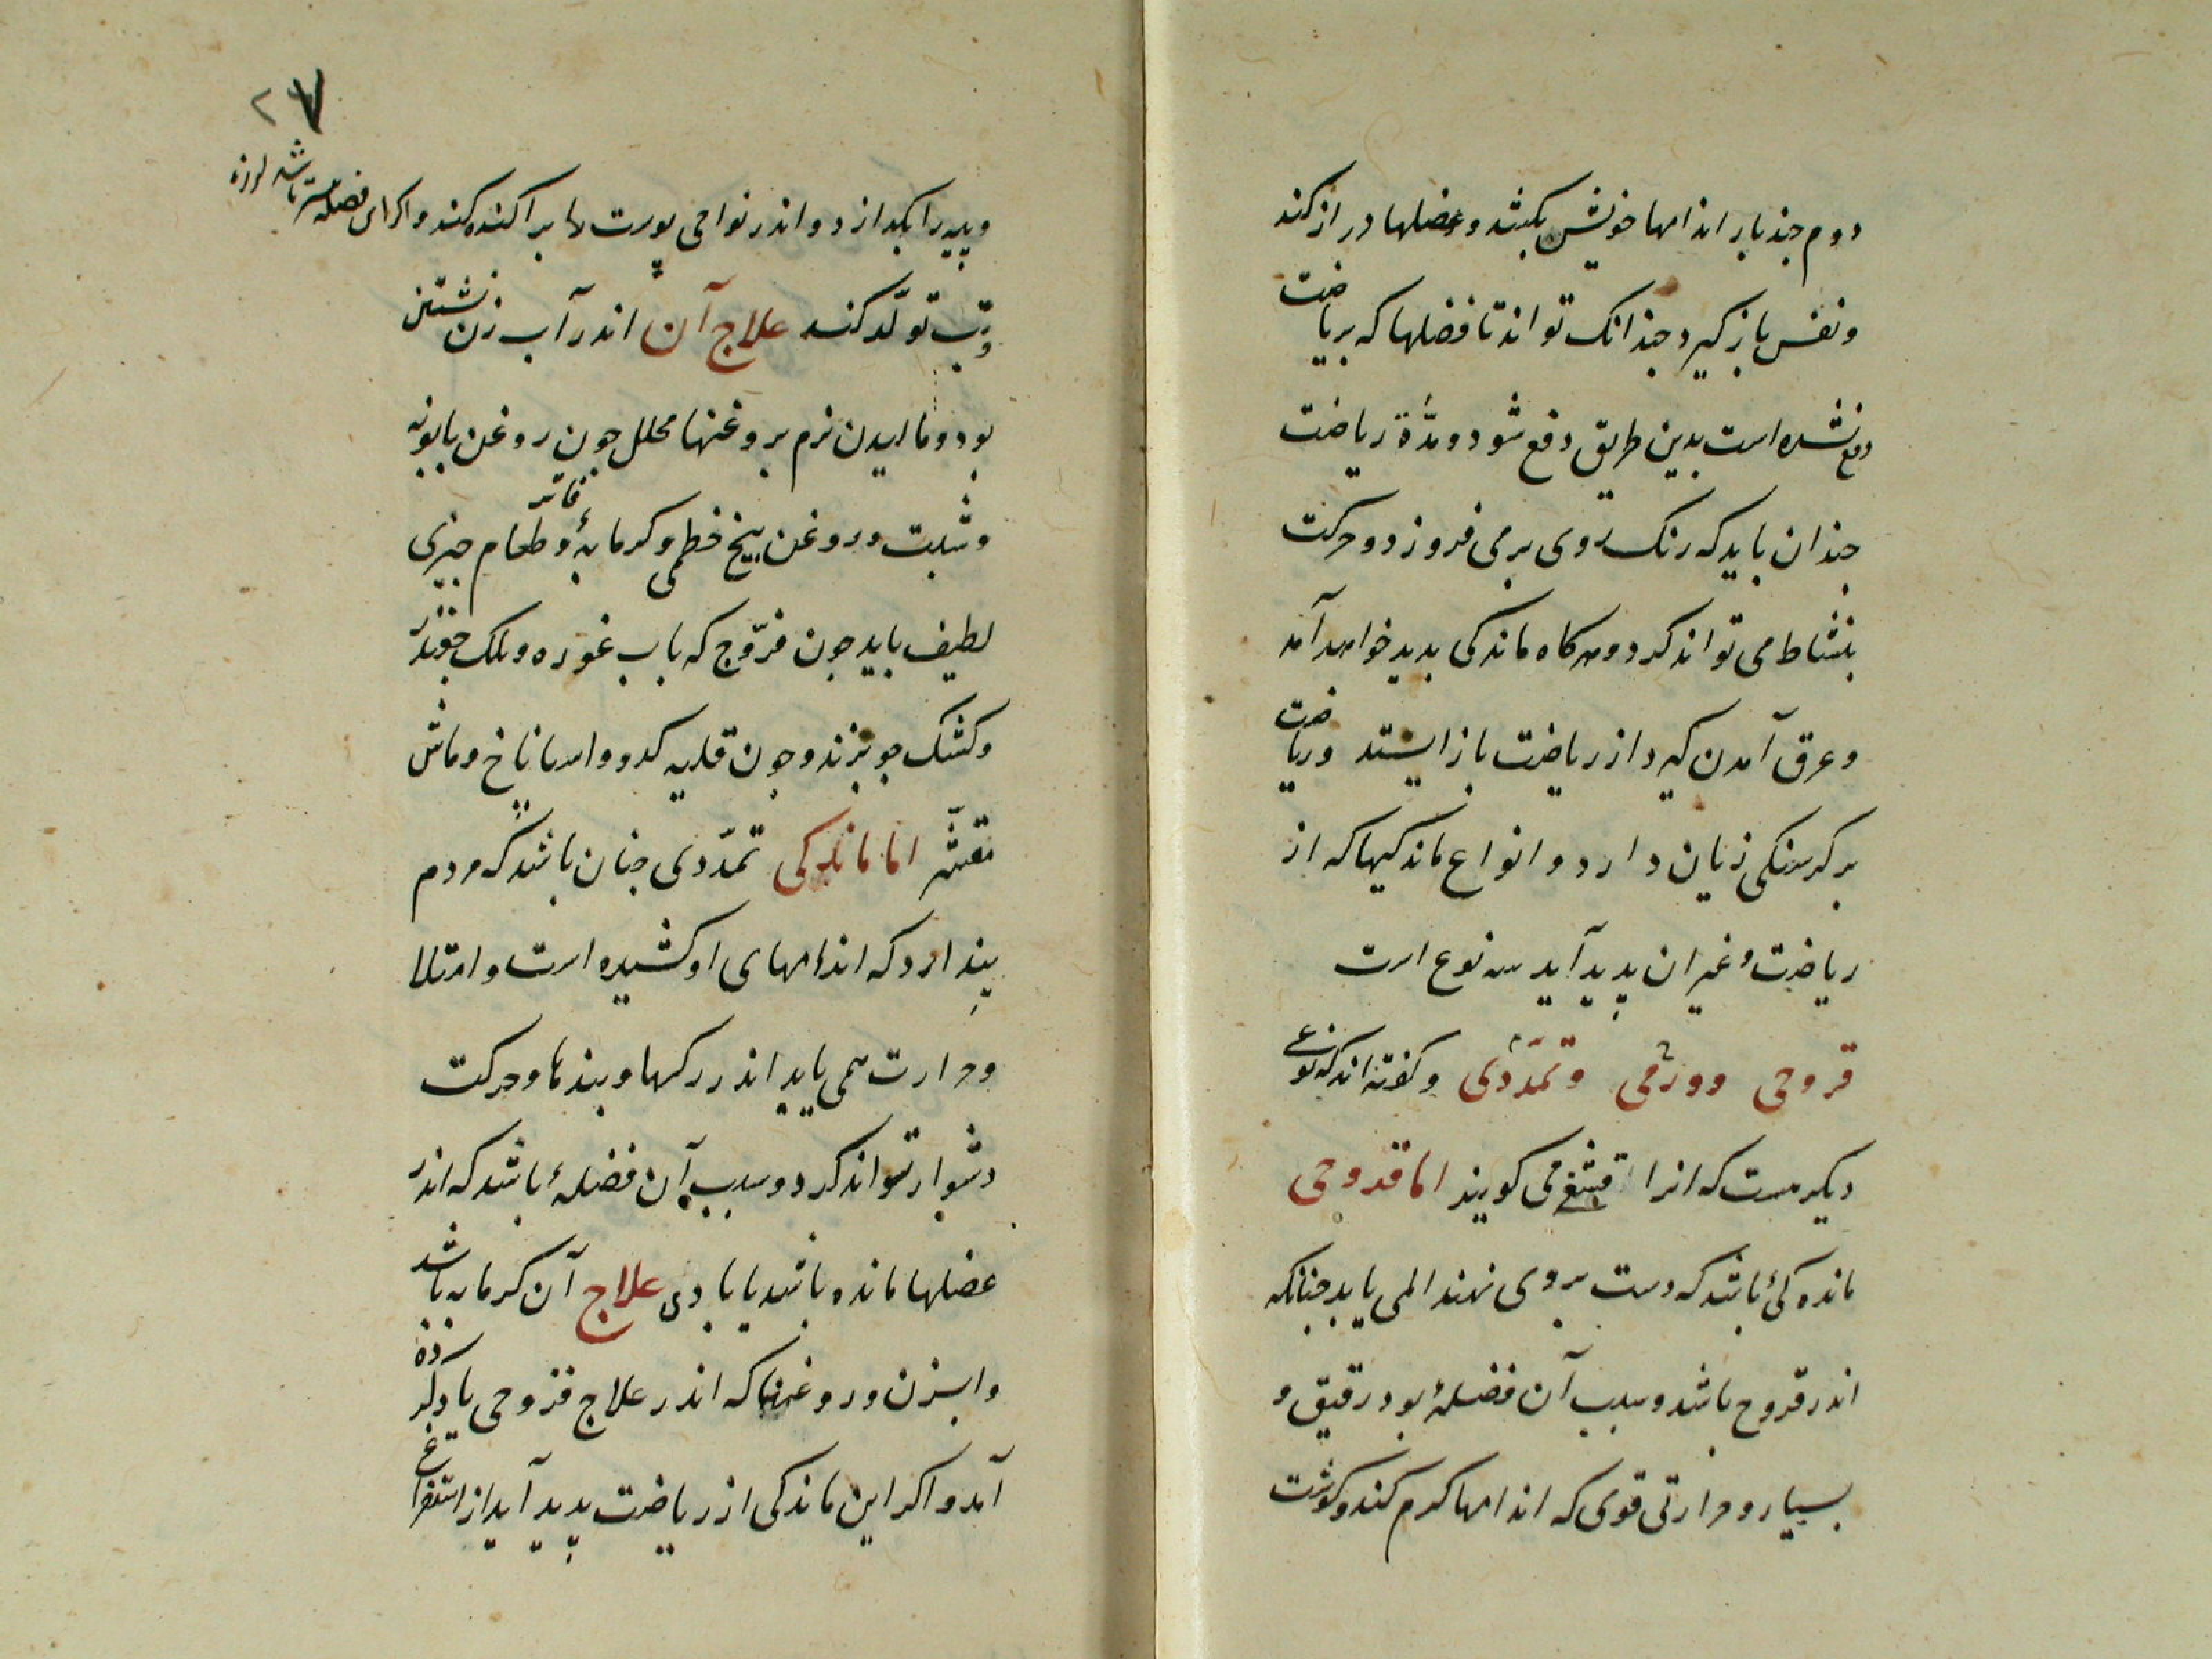 دوم چند بار اندامها خویش بکشد و عضلها دراز کند
و نفس باز کیرد چندانک تواند تا فضلها که بریاضت
دفع نشده است بدین طریق دفع شود و مدّة ریاضت
چندان باید که رنک روی بر می فروزد و حرکت
بنشاط می تواند کرد و هرکاه ماندکی بدید خواهد آمد
و عرق آمدن کیرد از ریاضت باز ایستد و ریاضت
بر کرسنکی زیان دارد و انواع ماندکیها که از
ریاضت و غیر ان پدید آید سه نوع است
قروحی و ورمی و تمدّدی و کفته اند که نوعی
دیکر هست که انرا قشفی می کویند اما قروحی
مانده کیٔ باشد که دست بر وی نهند المی یابد چنانکه
اندر قروح باشد و سبب آن فضلهٔ بود رقیق و
بسیار و حرارتی قوی که اندامها کرم کند و کوشت
۲۷
و پیه را بکدازد و اندر نواحی پوست ها براکنده کند و اکر این فضله
تب تولّد کند علاج آن اندر آب زن نشستن
بود و مالیدن نرم بروغنها محلل چون روغن بابونه
و شبت و روغن بیخ خطمی و کرمابهٔ فاتر و طعام چیزی
لطیف باید چون فرّوج که باب غوره و بلک چغندر
و کشک جو بزند و چون قلیه کدو و اسپاناخ و ماش
مقشّر اما ماندکی تمدّدی چنان باشد که مردم
پندارد که اندامهای او کشیده است و امتلا
و حرارت همی یابد اندر رکها و بندها و حرکت
دشوار تواند کرد و سبب آن فضلهٔ باشد که اندر
عضلها مانده باشد یا بادی علاج آن کرمابه باشد
و ابزن و روغنها که اندر علاج قروحی یاد کرده
آمد و اکر این ماندکی از ریاضت پدید آید از استفراغ